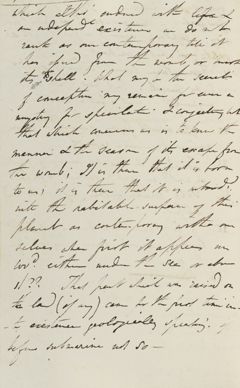 which altho' endued with life &
an independt existence we do not
rank as our contemporary till it
has issued from the womb or
the shell. What may be the secrets
of conception may remain for ever a
mystery for speculation & conjecture but
that which concerns us is to know the
manner & the season of its escape from
the womb; It is then that it is born
to us; it is then that it is
with the habitable surface of this
planet as contemporary with our
selves when first it appears in
either under the sea or above
it ?? That part which was raised on
the land (if any) came for the first time in-
-to existence geologically speaking, if
before submarine not so —